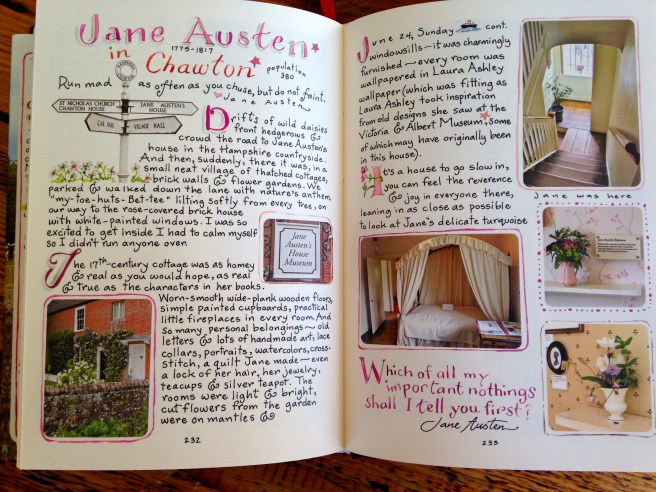 Jane Austen
1775-1817
in Chawton
population
380
Run mad as often as you chuse, but do not faint.
Jane Austen
ST NICHOLAS CHURCH
CHAWTON HOUSE
JANE AUSTEN'S
HOUSE
CAR PARK
VILLAGE HALL
Drifts of wild daisies
& front hedgerows &
crowd the road to Jane Austen's
house in the Hampshire countryside.
And then, suddenly, there it was, in a
small neat village of thatched cottages,
brick walls & flower gardens. We
parked & walked down the lane with nature's anthem,
"my-toe-huts-Bet-tee" lilting softly from every tree, on
our way to the rose-covered brick house
with white-painted windows. I was so
excited to get inside I had to calm myself
so I didn't run anyone over.
Jane
Austen's
House
Museum
The 17th-century cottage was as homey
& real as you would hope, as real
& true as the characters in her books.
Worn-smooth wide-plank wooden floors,
simple painted cupboards, practical
little fireplaces in every room. And
so many personal belongings — old
letters & lots of handmade art, lace
collars, portraits, watercolors, cross-
stitch, a quilt Jane made — even
a lock of her hair, her jewelry,
teacups & silver teapot. The
rooms were light & bright,
cut flowers from the garden
were on mantles &
232
June 24, Sunday cont.
windowsills — it was charmingly
furnished — every room was
wallpapered in Laura Ashley
wallpaper (which was fitting as
Laura Ashley took inspiration
from old designs she saw at the
Victoria & Albert Museum, some
of which may have originally been
in this house).
It's a house to go slow in,
you can feel the reverence
& joy in everyone there,
leaning in as close as possible
to look at Jane's delicate turquoise
Jane was here
Which of all my
important nothings
shall I tell you first?
Jane Austen
233